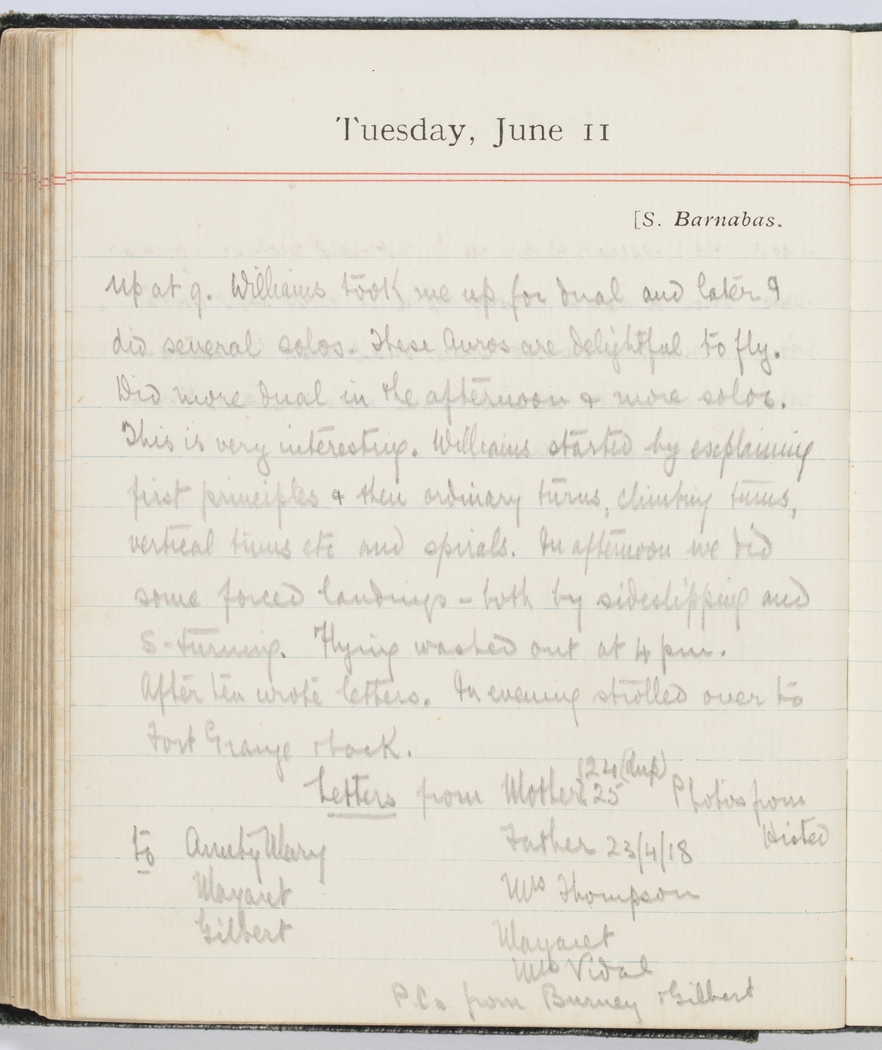 Tuesday, June 11
[S. Barnabas.
Up at 9. Williams took me up for dual and later I
did several solos. These Avros are delightful to fly.
Did more dual in the afternoon & more solos.
This is very interesting. Williams started by explaining
first principles & then ordinary turns, climbing turns,
vertical turns etc and spirals. In afternoon we did
some forced landings - both by sideslipping and
S-turning. Flying washed out at 4 pm.
After tea wrote letters. In evening strolled over to
Fort Grange & back.
Letters from Mother {24 (dup) 25 Photos from
Histed
to Aunty Mary Father 23/4/18
Margaret Mrs Thompson
Gilbert Margaret
Mrs Vidal
P.Cs from Burney & Gilbert